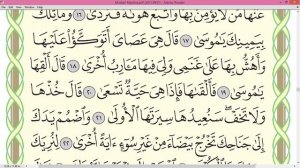 عَنْهَا مَن لَّا يُؤْمِنُ بِهَا وَٱتَّبَعَ هَوَىٰهُ فَتَرْدَىٰ ١٦ وَمَا تِلْكَ
بِيَمِينِكَ يَٰمُوسَىٰ ١٧ قَالَ هِىَ عَصَاىَ أَتَوَكَّؤُا۟ عَلَيْهَا
وَأَهُشُّ بِهَا عَلَىٰ غَنَمِى وَلِىَ فِيهَا مَـَٔارِبُ أُخْرَىٰ ١٨ قَالَ أَلْقِهَا
يَٰمُوسَىٰ ١٩ فَأَلْقَىٰهَا فَإِذَا هِىَ حَيَّةٌ تَسْعَىٰ ٢٠ قَالَ خُذْهَا
وَلَا تَخَفْ سَنُعِيدُهَا سِيرَتَهَا ٱلْأُولَىٰ ٢١ وَٱضْمُمْ يَدَكَ
إِلَىٰ جَنَاحِكَ تَخْرُجْ بَيْضَآءَ مِنْ غَيْرِ سُوٓءٍ ءَايَةً أُخْرَىٰ ٢٢ لِنُرِيَكَ